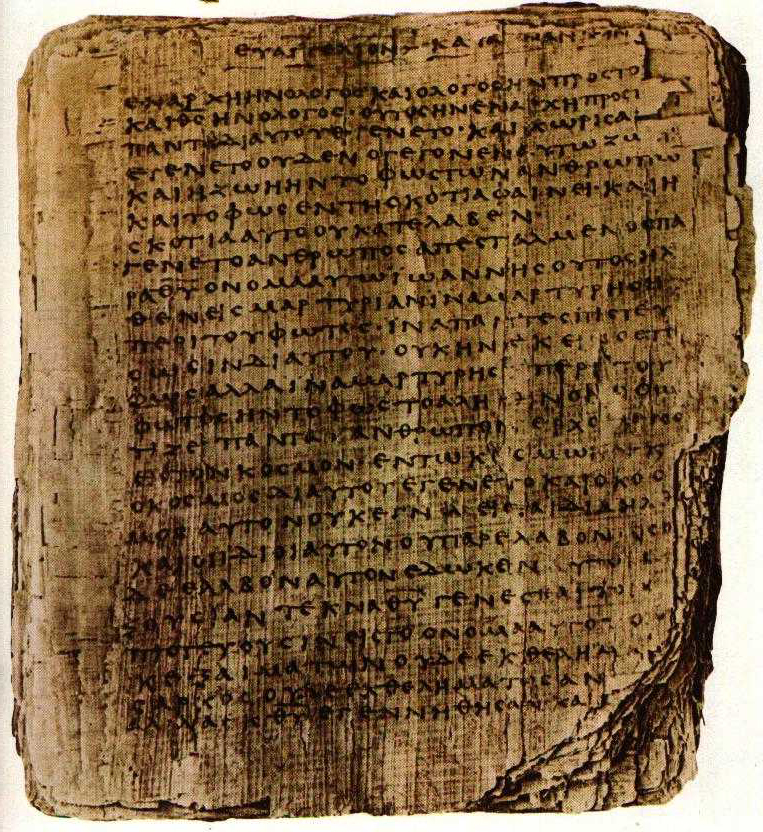 ΕΥΑΓΓΕΛΙΟΝ ΚΑΤΑ
ΕΝΑΡΧΗΗΝΟΛΟΓΟϹΚΑΙΟΛΟΓΟϹΗΝΠΡΟϹΤΟ
ΚΑΙΘϹΗΝΟΛΟΓΟϹ·ΟΥΤΟϹΗΝΕΝΑΡΧΗΠΡΟϹ
ΠΑΝΤΑΔΙΑΥΤΟΥΕΓΕΝΕΤΟ·ΚΑΙΧΩΡΙϹΑ
ΕΓΕΝΕΤΟΟΥΔΕΝΟΓΕΓΟΝΕΝΕΝΑΥΤΩΖΩ
ΚΑΙΗΖΩΗΗΝΤΟΦΩϹΤΩΝΑΝΘΡΩΠΩ
ΚΑΙΤΟΦΩϹΕΝΤΗϹΚΟΤΙΑΦΑΙΝΕΙ·ΚΑΙΗ
ϹΚΟΤΙΑΑΥΤΟΟΥΚΑΤΕΛΑΒΕΝ
ΓΕΝΕΤΟΑΝΘΡΩΠΟϹΑΠΕϹΤΑΛΜΕΝΟϹΠΑ
ΡΑΘΥΟΝΟΜΑΑΥΤΩΙΩΑΝΝΗϹΟΥΤΟϹΗΛ
ΘΕΝΕΙϹΜΑΡΤΥΡΙΑΝΙΝΑΜΑΡΤΥΡΗϹΗ
ΠΕΡΙΤΟΥΦΩΤΟϹ·ΙΝΑΠΑΝΤΕϹΠΙϹΤΕΥ
ϹΩϹΙΝΔΙΑΥΤΟΥ·ΟΥΚΗΝΕΚΕΙΝΟϹΤΟ
ΦΩϹΑΛΛΑΙΝΑΜΑΡΤΥΡΗϹΗΠΕΡΙΤΟΥ
ΦΩΤΟϹΗΝΤΟΦΩϹΤΟΑΛΗΘΙΝΟΝΟΦΩ
ΤΙΖΕΙΠΑΝΤΑΑΝΘΡΩΠΟΝΕΡΧΟΜΕΝΟΝ
ΕΙϹΤΟΝΚΟϹΜΟΝ·ΕΝΤΩΚΟϹΜΩΗΝΚ
ΟΚΟϹΜΟϹΔΙΑΥΤΟΥΕΓΕΝΕΤΟΚΑΙΟΚΟϹ
ΜΟϹΑΥΤΟΝΟΥΚΕΓΝΩΕΙϹΤΑΙΔΙΑΗΛΘ
ΚΑΙΟΙΙΔΙΟΙΑΥΤΟΝΟΥΠΑΡΕΛΑΒΟΝ·ΟϹΟΙ
ΔΕΕΛΑΒΟΝΑΥΤΟΝΕΔΩΚΕΝΑΥΤΟΙϹΕ
ΞΟΥϹΙΑΝΤΕΚΝΑΘΥΓΕΝΕϹΘΑΙΤΟΙϹ
ΠΙϹΤΕΥΟΥϹΙΝΕΙϹΤΟΟΝΟΜΑΑΥΤΟΥΟΙ
ΚΕΞΑΙΜΑΤΩΝΟΥΔΕΕΚΘΕΛΗΜΑ
ϹΑΡΚΟϹΟΥΔΕΕΚΘΕΛΗΜΑΤΟϹΑΝ
ΑΛΛΑΕΚΘΥΕΓΕΝΝΗΘΗϹΑΝΚΑΙ